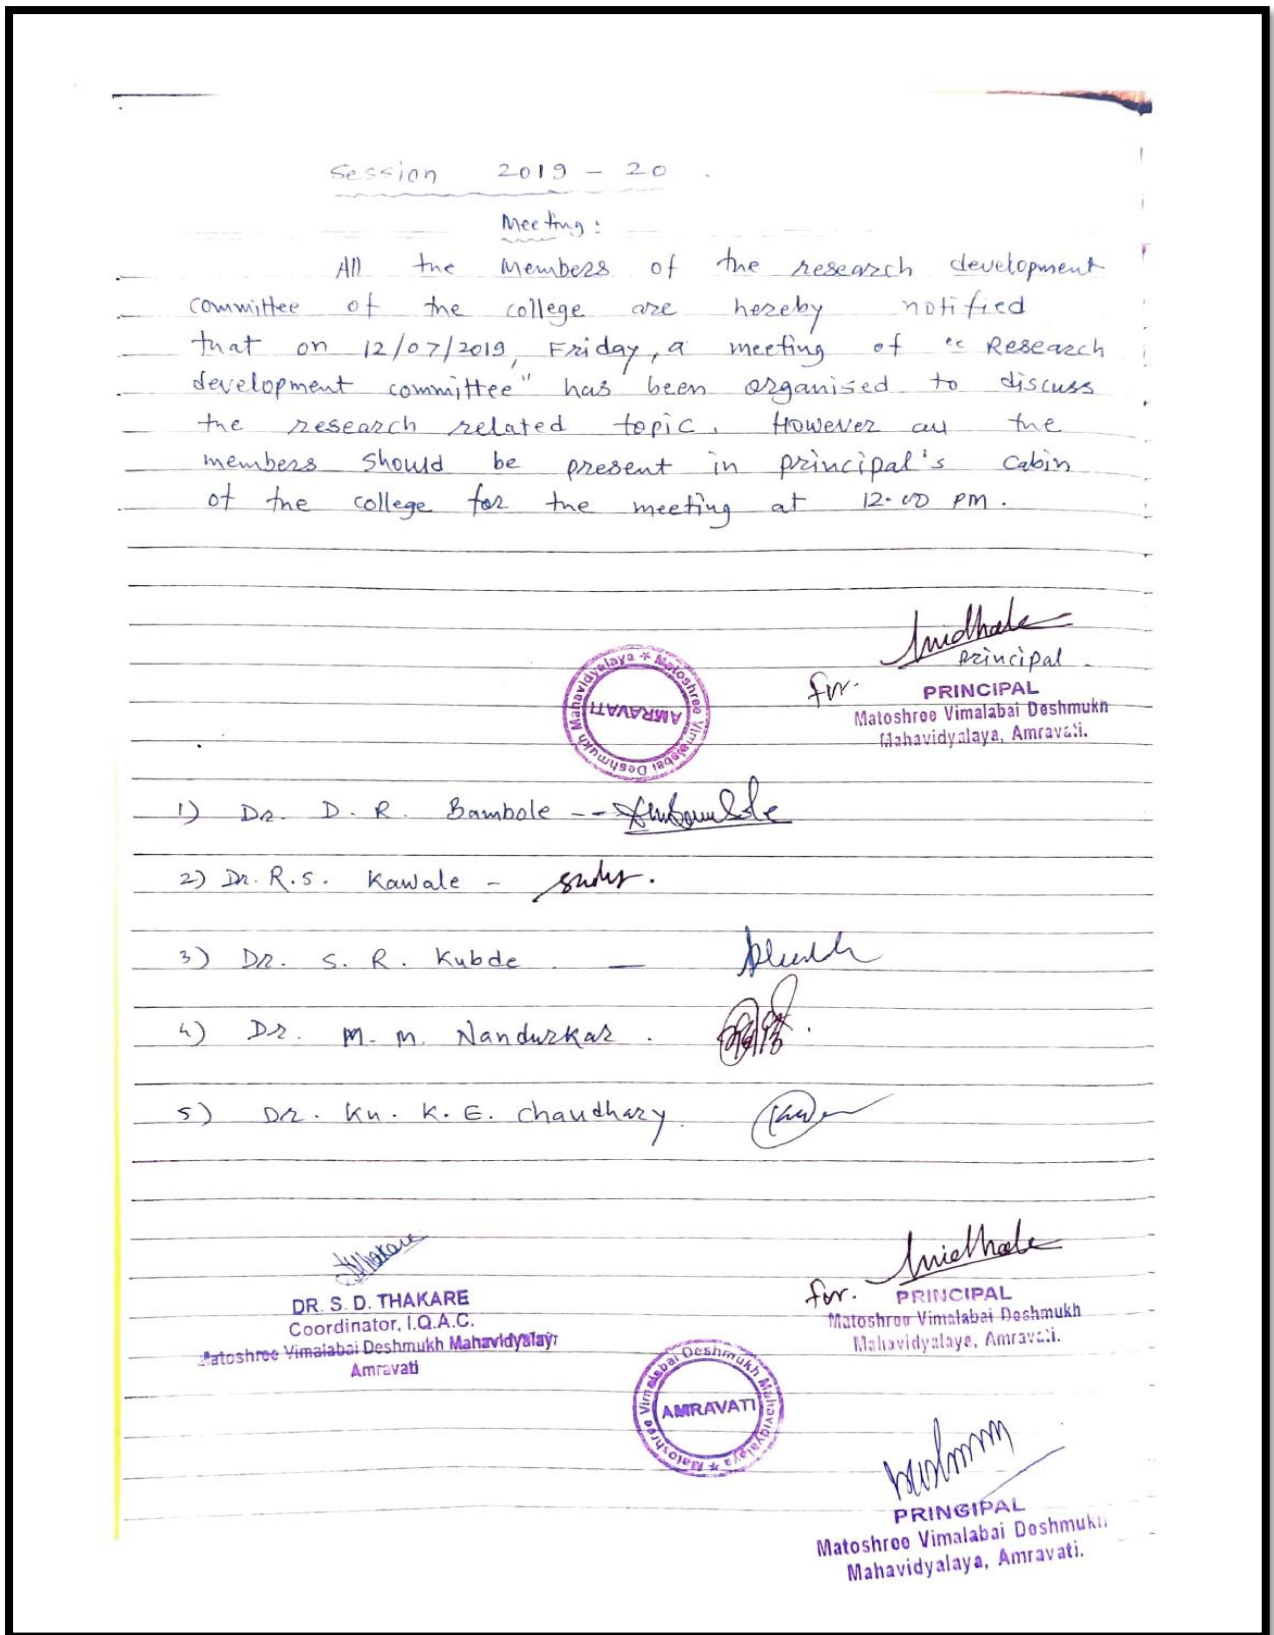 Session 2019 - 20 .
Meeting :
All the Members of the research development
committee of the college are hereby notified
that on 12/07/2019, Friday, a meeting of " Research
development committee" has been organised to discuss
the research related topic. However all the
members should be present in principal's cabin
of the college for the meeting at 12.00 pm.
principal
for.
PRINCIPAL
Matoshree Vimalabai Deshmukh
Mahavidyalaya, Amravati.
Matoshree Vimalabai Deshmukh Mahavidyalaya *
AMRAVATI
1) Dr. D. R. Bambole --
2) Dr. R.S. Kawale -
3) Dr. S. R. Kubde . —
4) Dr. M. M. Nandurkar .
5) Dr. Ku. K. E. Chaudhary.
DR. S. D. THAKARE
Coordinator, I.Q.A.C.
Matoshree Vimalabai Deshmukh Mahavidyalay
Amravati
for.
PRINCIPAL
Matoshree Vimalabai Deshmukh
Mahavidyalaya, Amravati.
Matoshree Vimalabai Deshmukh Mahavidyalaya *
AMRAVATI
PRINCIPAL
Matoshree Vimalabai Deshmukh
Mahavidyalaya, Amravati.